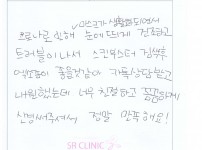 마스크가 생활화 되면서
코로나로 인해 눈에 띄게 건조하고
트러블이 나서 스킨부스터 김색후
엑소좀이 좋을것같다 카톡상담받고
내원했는데 너무 친절하고 꼼꼼하게
신경써주셔서 정말 만족해요!
SR CLINIC